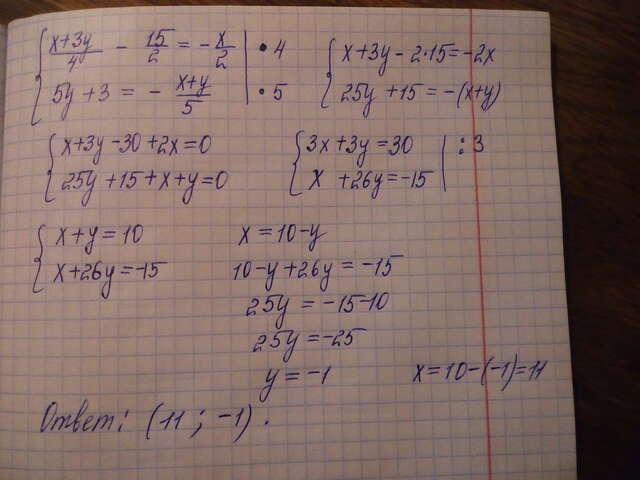 { (x+3y)/4 - 15/2 = -x/2 | • 4
{ 5y + 3 = - (x+y)/5 | • 5
{ x+3y - 2·15 = -2x
{ 25y + 15 = -(x+y)
{ x+3y -30 + 2x = 0
{ 25y + 15 + x + y = 0
{ 3x + 3y = 30 | : 3
{ x + 26y = -15
{ x + y = 10
{ x + 26y = -15
x = 10 - y
10 - y + 26y = -15
25y = -15 - 10
25y = -25
y = -1
x = 10 - (-1) = 11
Ответ: (11 ; -1).